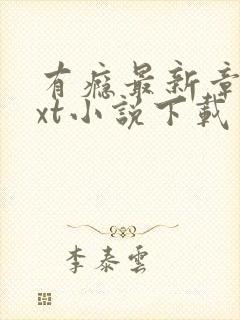 有瘾最新章
xt小說下載
李泰雲